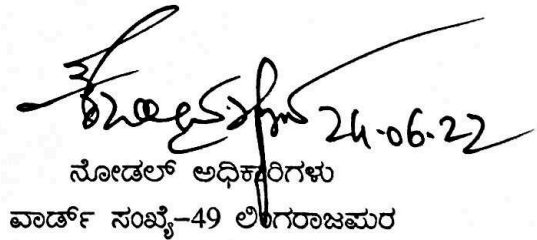 24-06-22
ನೋಡಲ್ ಅಧಿಕಾರಿಗಳು
ವಾರ್ಡ್ ಸಂಖ್ಯೆ-49 ಲಿಂಗರಾಜಪುರ